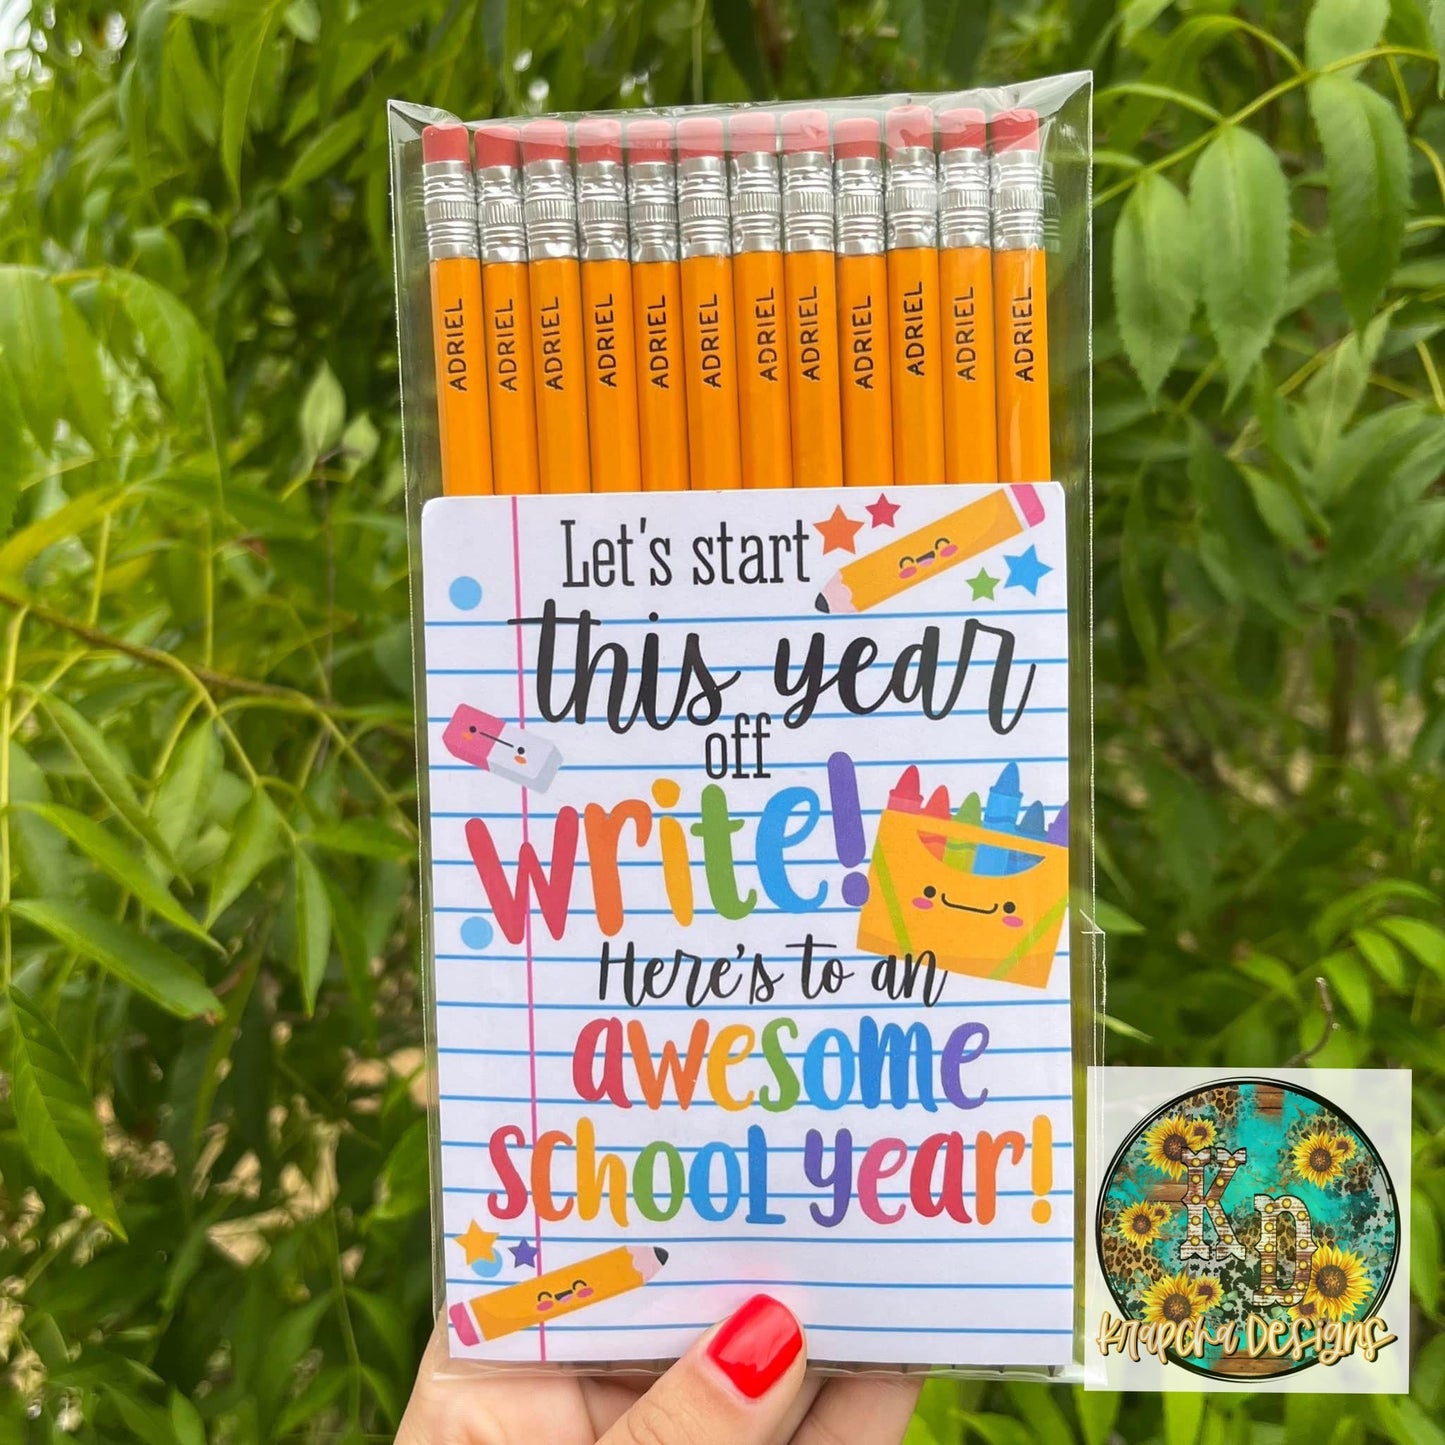 ADRIEL ADRIEL ADRIEL ADRIEL ADRIEL ADRIEL ADRIEL ADRIEL ADRIEL ADRIEL ADRIEL ADRIEL
Let's start
this year
off
write!
Here's to an
awesome
school year!
KD
Krapcha Designs